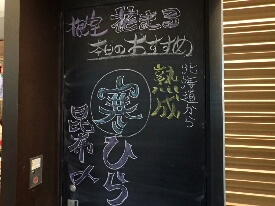 本日のおすすめ
北海道から
熟成
寒ひら
昆布〆